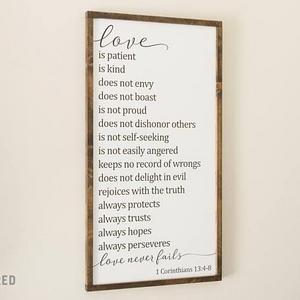 love
is patient
is kind
does not envy
does not boast
is not proud
does not dishonor others
is not self-seeking
is not easily angered
keeps no record of wrongs
does not delight in evil
rejoices with the truth
always protects
always trusts
always hopes
always perseveres
love never fails
1 Corinthians 13:4-8
RED